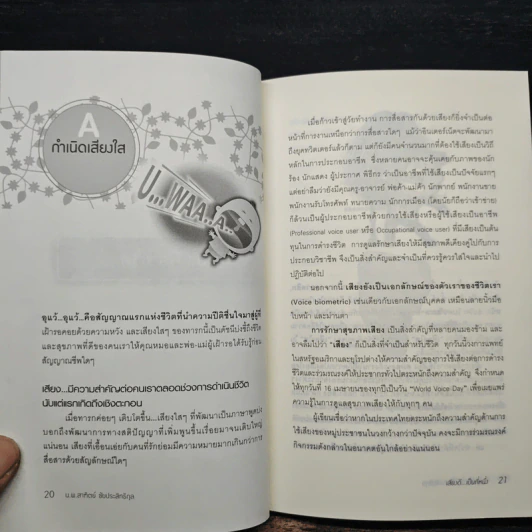 A
กำเนิดเสียงใส
U...WAA...A..
อุแว้...อุแว้...คือสัญญาณแรกแห่งชีวิตที่นำความปีติชื่นใจมาสู่ผู้ที่
เฝ้ารอคอยด้วยความหวัง และเสียงใสๆ ของทารกนี้เป็นดัชนีบ่งชี้ถึงชีวิต
และสุขภาพที่ดีของคนเราให้คุณหมอและพ่อ-แม่ผู้เฝ้ารอได้รับรู้ก่อน
สัญญาณชีพใดๆ
เสียง...มีความสำคัญต่อคนเราตลอดช่วงการดำเนินชีวิต
นับแต่แรกเกิดถึงเชิงตะกอน
เมื่อทารกค่อยๆ เติบโตขึ้น...เสียงใสๆ ที่พัฒนาเป็นภาษาพูดบ่ง
บอกถึงพัฒนาการทางสติปัญญาที่เพิ่มพูนขึ้นเรื่อยมาจนเติบใหญ่
แน่นอน เสียงที่เอื้อนเอ่ยกับคนที่รักย่อมมีความหมายมากเกินกว่าการ
สื่อสารด้วยสัญลักษณ์ใดๆ
20 น.พ.สาทิตย์
เมื่อก้าวเข้าสู่วัยทำงาน การสื่อสารกันด้วยเสียงก็ยิ่งจำเป็นต่อ
หน้าที่การงานเหนือกว่าการสื่อสารใดๆ แม้ว่าอินเตอร์เน็ตจะพัฒนามา
ถึงยุคทวิตเตอร์แล้วก็ตาม แต่ก็ยังมีคนจำนวนมากที่ต้องใช้เสียงเป็นวิถี
หลักในการประกอบอาชีพ ซึ่งหลายคนอาจจะคุ้นเคยกับภาพของนัก
ร้อง นักแสดง ผู้ประกาศ พิธีกร ว่าเป็นอาชีพที่ใช้เสียงเป็นปัจจัยแรกๆ
แต่อย่าลืมว่ายังมีคุณครู-อาจารย์ พ่อค้า-แม่ค้า นักพากย์ พนักงานขาย
พนักงานรับโทรศัพท์ ทนายความ นักการเมือง (โดยนัยก็ถือว่าเข้าข่าย)
ก็ล้วนเป็นผู้ประกอบอาชีพด้วยการใช้เสียงหรือผู้ใช้เสียงเป็นอาชีพ
(Professional voice user หรือ Occupational voice user) ที่มีเสียงเป็นต้น
ทุนในการดำรงชีวิต การดูแลรักษาเสียงให้มีสุขภาพดีเคียงคู่ไปกับการ
ประกอบวิชาชีพ จึงเป็นสิ่งสำคัญและจำเป็นที่ควรรู้ควรใส่ใจและนำไป
ปฏิบัติต่อไป
นอกจากนี้ เสียงยังเป็นเอกลักษณ์ของตัวเราของชีวิตเรา
(Voice biometric) เช่นเดียวกับเอกลักษณ์บุคคล เหมือนลายนิ้วมือ
ใบหน้า และม่านตา
การรักษาสุขภาพเสียง เป็นสิ่งสำคัญที่หลายคนมองข้าม และ
อาจลืมไปว่า "เสียง" ก็เป็นสิ่งที่จำเป็นสำหรับชีวิต ทุกวันนี้วงการแพทย์
ในสหรัฐอเมริกาและยุโรปต่างให้ความสำคัญของการใช้เสียงต่อการดำรง
ชีวิตและร่วมรณรงค์ให้ประชากรทั่วไปตระหนักถึงความสำคัญ จึงกำหนด
ให้ทุกวันที่ 16 เมษายนของทุกปีเป็นวัน "World Voice Day" เพื่อเผยแพร่
ความรู้ในการดูแลสุขภาพเสียงให้กับทุกๆ คน
ผู้เขียนเชื่อว่าหากในประเทศไทยตระหนักถึงความสำคัญด้านการ
ใช้เสียงของหมู่ประชาชนในวงกว้างกว่าปัจจุบัน คงจะมีการร่วมรณรงค์
กิจกรรมดังกล่าวในอนาคตอันใกล้อย่างแน่นอน
เสียงดี...เป็นที่หนึ่ง 21